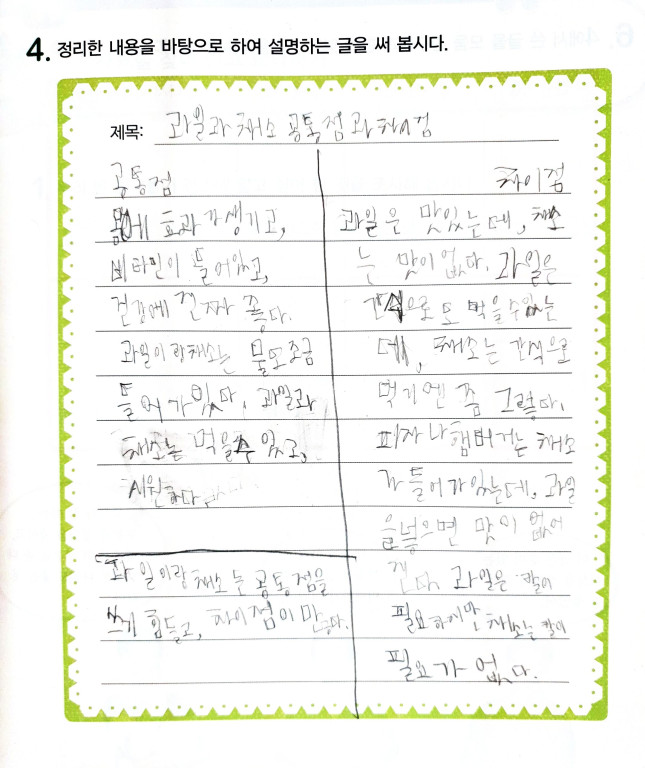 4. 정리한 내용을 바탕으로 하여 설명하는 글을 써 봅시다.
제목: 과일과 채소 공통점과 차이점
공통점
몸에 효과가생기고,
비타민이 들어있고,
건강에 진짜 좋다.
과일이랑채소는 물도조금
들어가있다, 과일과
채소는 먹을수 있고,
시원하다
과일이랑 채소는 공통점을
쓰기 힘들고, 차이점이 많다.
차이점
과일은 맛있는데, 채소
는 맛이없다. 과일은
간식으로도 먹을수있는
데, 채소는 간식으로
먹기엔 좀 그렇다.
피자나햄버거는 채소
가 들어가있는데, 과일
을넣으면 맛이 없어
진다. 과일은 칼이
필요하지만 채소는 칼이
필요가 없다.